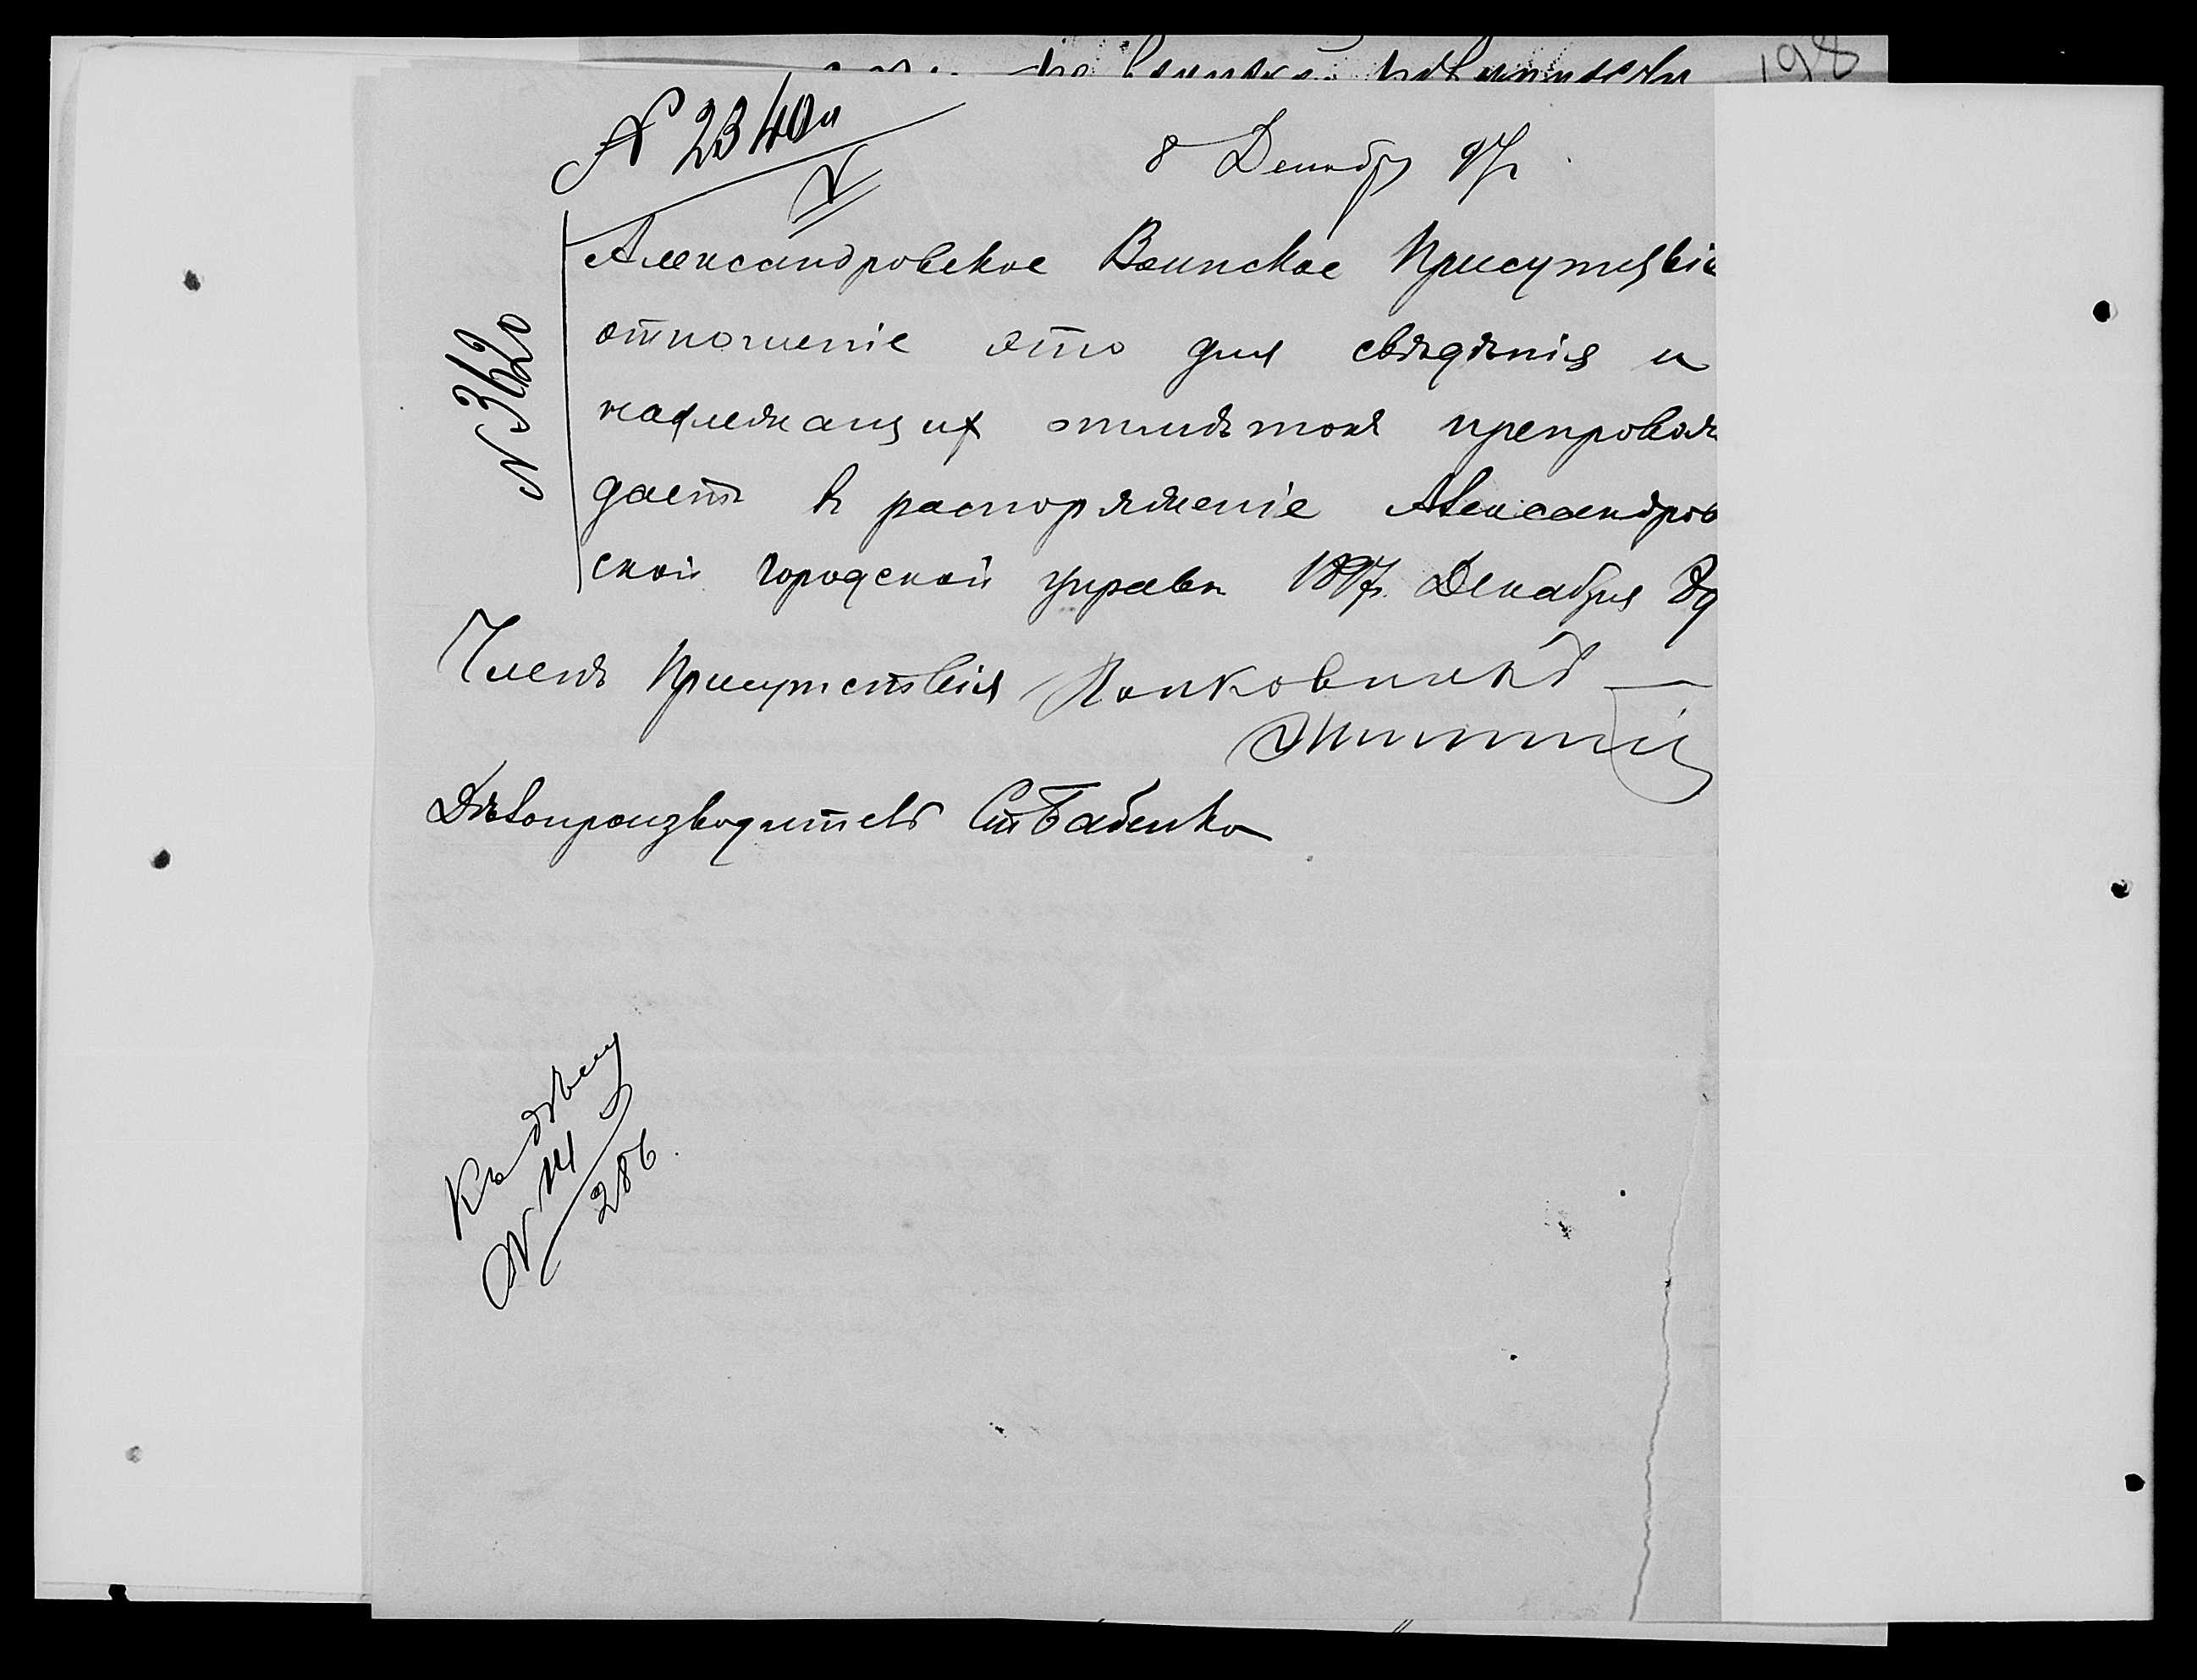 198
№ 2340
8 Декабр 97 г
Александровское Воинское Присутствіе
отношеніе это для свѣдѣнія и
надлежащих отмѣтокъ препровож
даетъ въ распоряженіе Александров
ской городской управы 1897 г. Декабря 8 д
№ 3620
Членъ Присутствія Полковникъ
Дѣлопроизводитель Ст Бабенко
Къ дѣлу
№ 141
286.